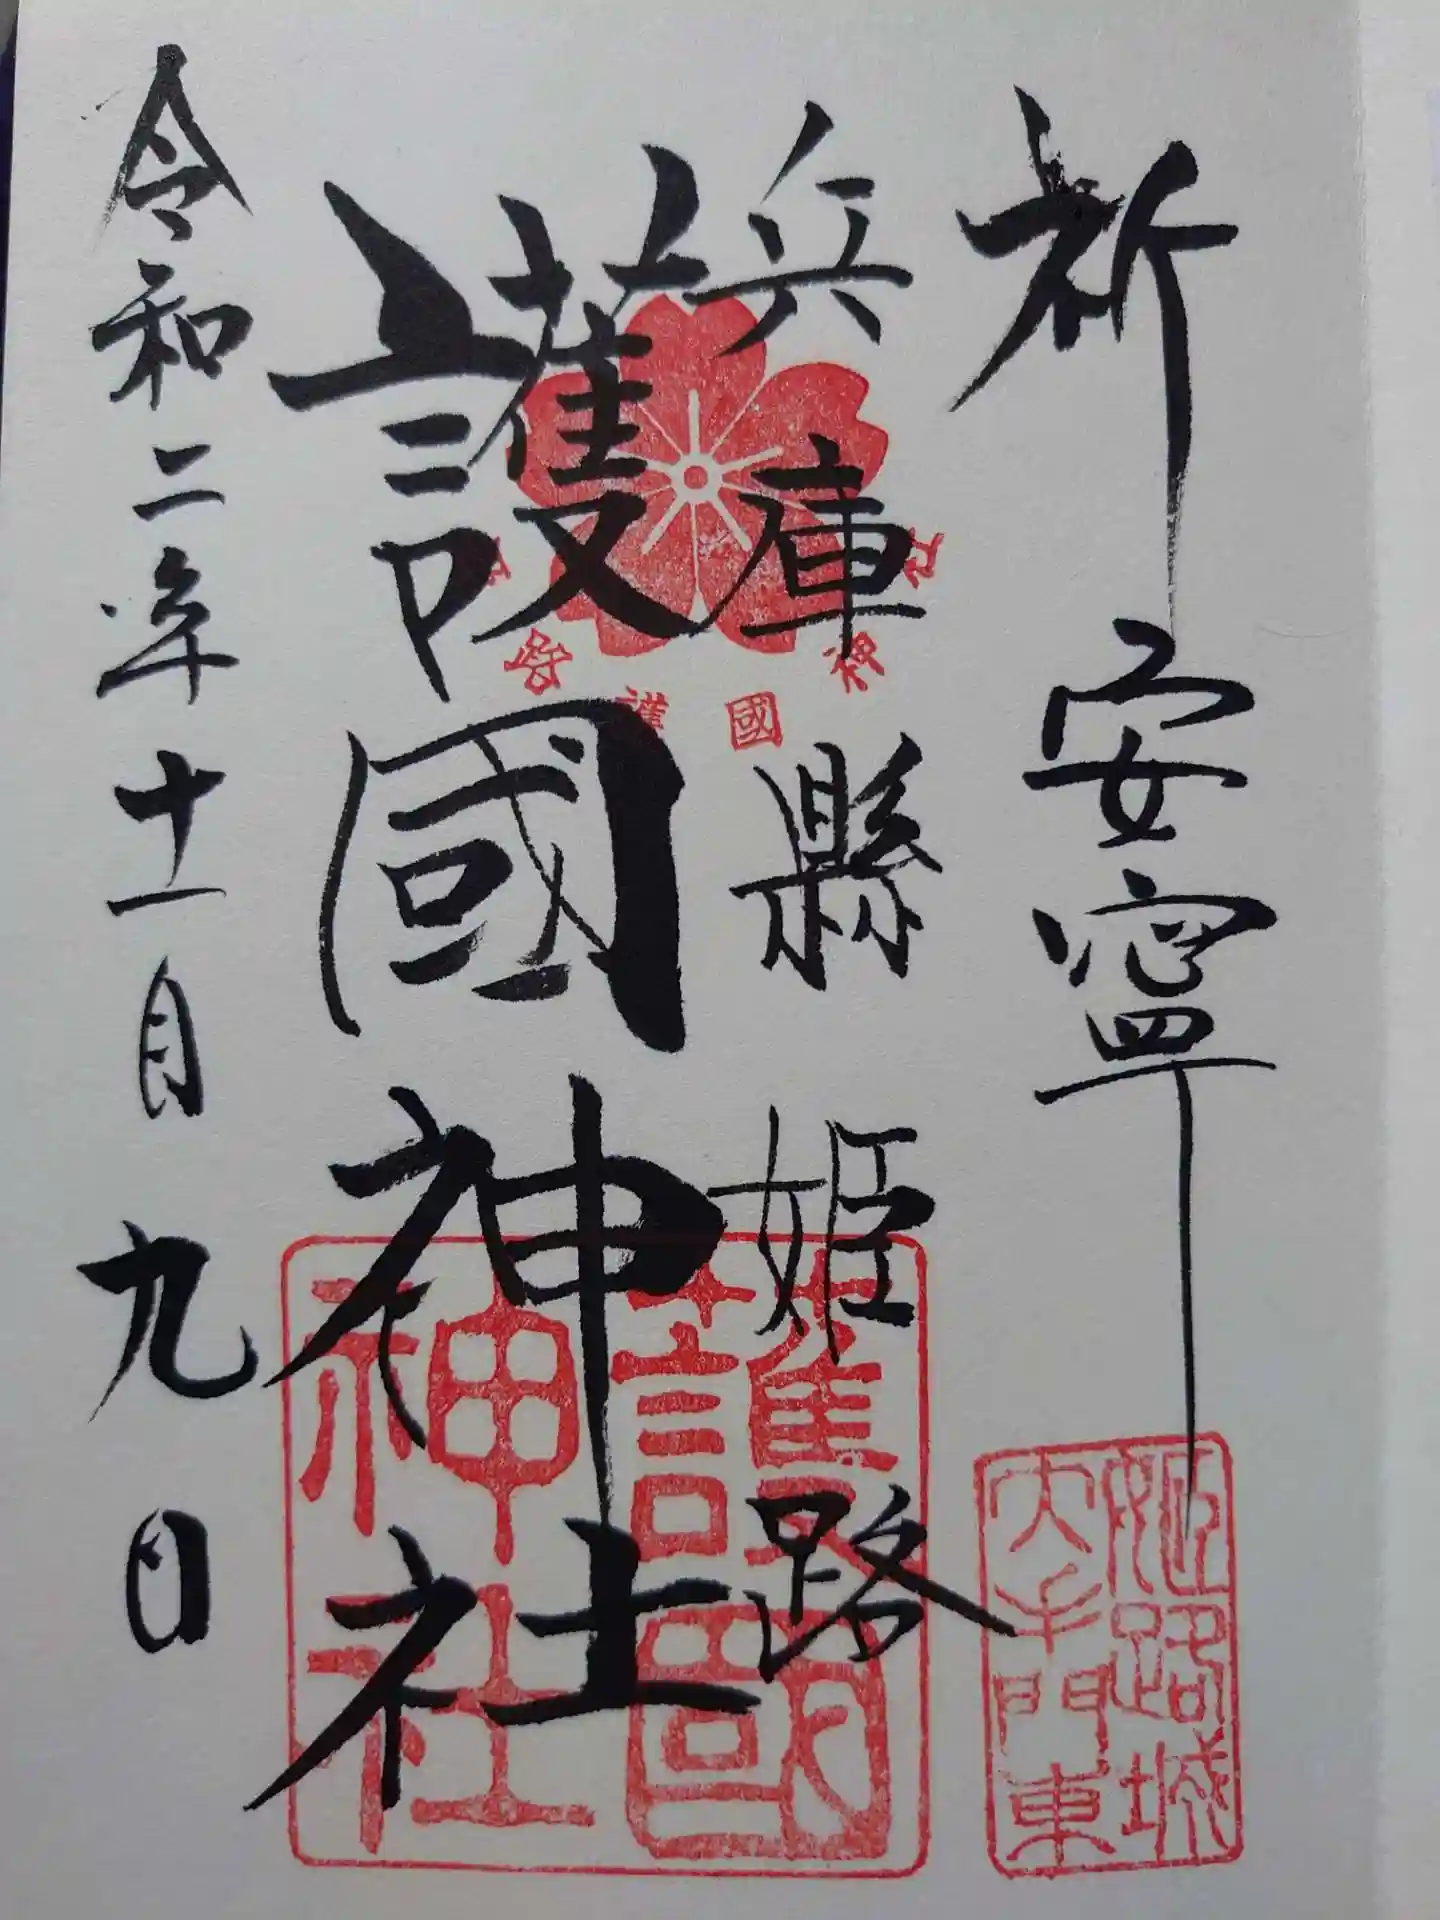 祈 安寧
兵庫縣姫路
護國神社
令和二年十一月九日
護國神
護國
神社
姫路城
大手門東